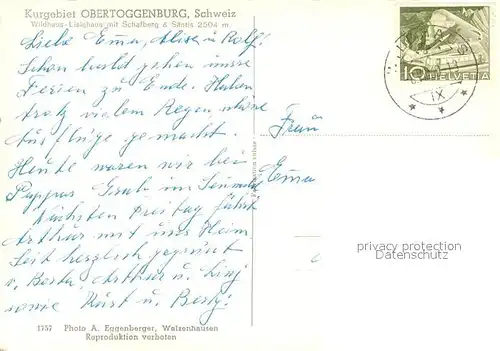 Kurgebiet OBERTOGGENBURG, Schweiz
Wildhaus-Lisighaus mit Schafberg & Säntis 2504 m
Liebe Emma, Alice u. Rolf!
Schon bald gehen unsre
Ferien zu Ende. Haben
trotz vielem Regen schöne
Ausflüge gemacht.
Heute waren wir bei
Pappas Grab im
Nächsten Freitag fährt
Arthur mit uns Heim
Seit herzlich gegrüsst
v. Berta, Arthur u.
sowie Kurt u. Berty!
1757 Photo A. Eggenberger, Walzenhausen
Reproduktion verboten
10 HELVETIA
IX
Frau
Emma
privacy protection
Datenschutz